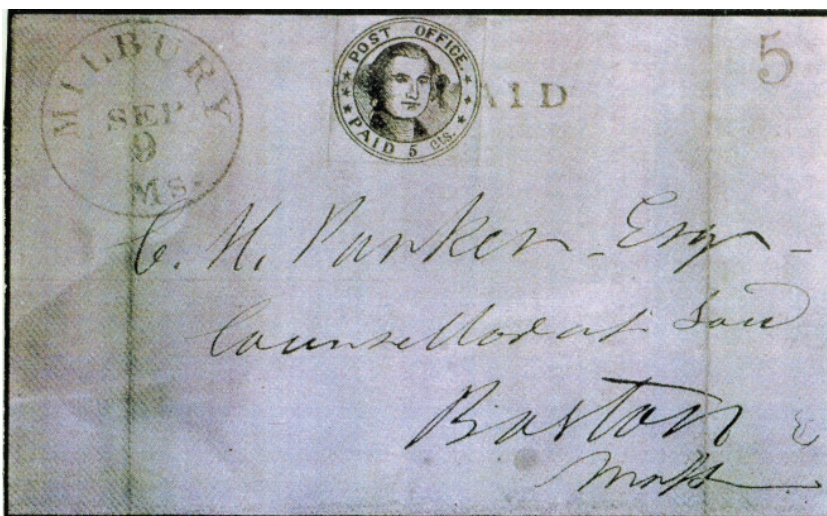 MILBURY
SEP
9
MS.
POST OFFICE
PAID 5 cts.
PAID
5
C. H. Parker - Esqr -
Counsellor at Law
Boston
Mass